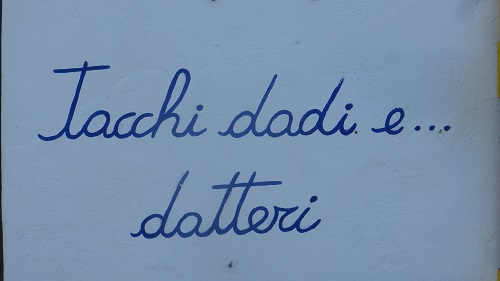 Tacchi dadi e...
datteri